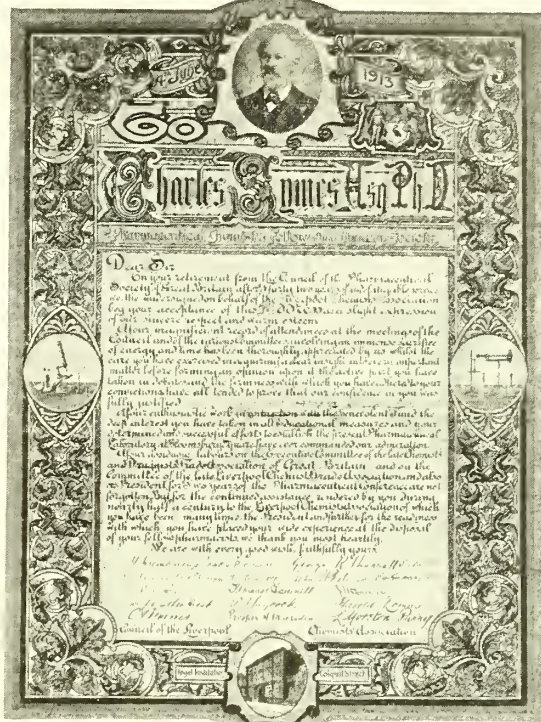 4th July
1913
To
Charles Symes Esq Ph.D
Pharmaceutical Chemist
Dear Sir
On your retirement from the Council of the Pharmaceutical
Society of Great Britain after thirty two years of
the undersigned on behalf of the Liverpool Chemists Association
beg your acceptance of this Address as a slight expression
of our sincere respect and warm esteem.
Your magnificent record of attendances at the meetings of the
Council and of the various Committees involving an immense sacrifice
of energy and time has been thoroughly appreciated by us whilst the
care you have exercised in acquiring a clear insight into every important
matter before forming an opinion upon it the active part you have
taken in debates and the firmness with which you have adhered to your
convictions have all tended to prove that our confidence in you was
fully justified
Your enthusiastic work in connection with the Benevolent Fund the
deep interest you have taken in all educational measures and your
determined and successful efforts to establish the present Pharmaceutical
Laboratory at Bloomsbury Square have ever commanded our admiration.
Your assiduous labours on the Executive Committee of the late Chemists
and Druggists Trade Association of Great Britain and on the
Committee of the late Liverpool Chemists Trade Association and also
as President for two years of the Pharmaceutical Conference are not
forgotten. But for the continued assistance rendered by you during
nearly half a century to the Liverpool Chemists Association of which
you have been many times the President and further for the readiness
with which you have placed your wide experience at the disposal
of your fellow pharmacists we thank you most heartily.
We are with every good wish, faithfully yours
Council of the Liverpool Chemists Association
Royal Institution Colquitt Street